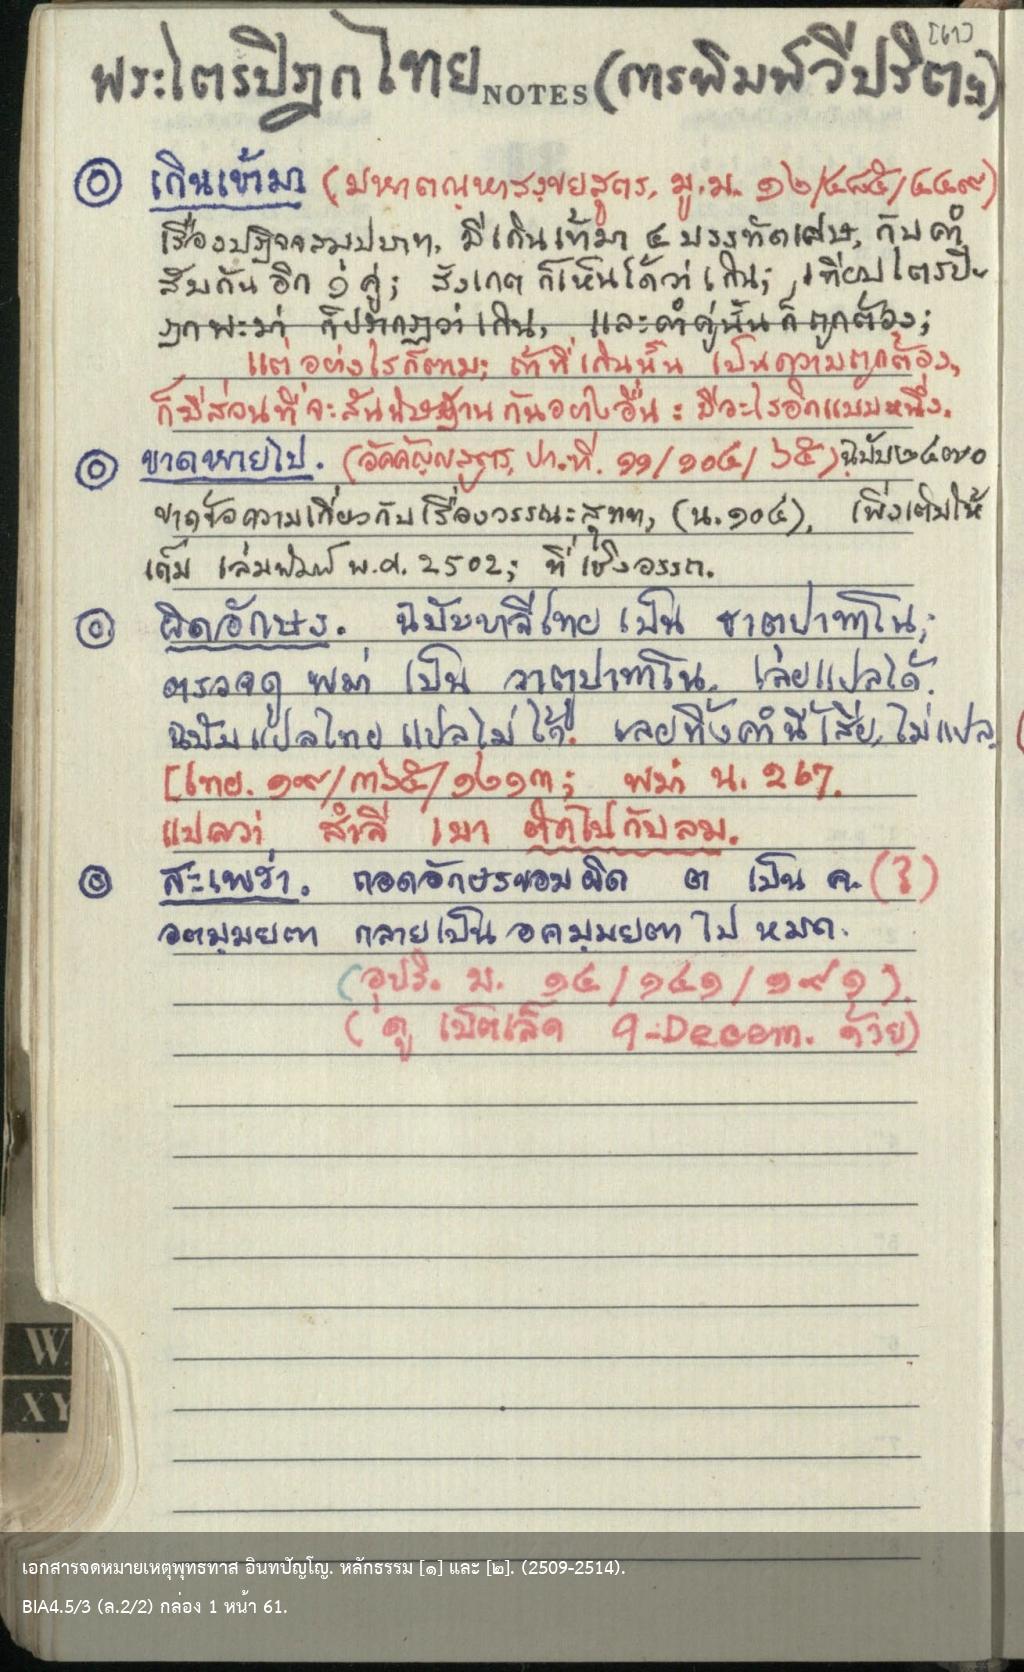 [๖๑]
พระไตรปิฎกไทย NOTES (การพิมพ์วิปริตะ)
๏ เกินเข้ามา (มหาตณฺหาสงฺขยสูตร, มู.ม. ๑๒/๔๘๕/๔๔๙)
เรื่องปฏิจจสมุปบาท, มีเกินเข้ามา ๔ บรรทัดเศษ, กับคำ
สับกันอีก ๑ คู่; สังเกตก็เห็นได้ว่าเกิน; เทียบไตรปิ-
ฎกพะม่า ก็ปรากฏว่าเกิน, และคำคู่นั้นก็ถูกต้อง;
แต่อย่างไรก็ตาม; ถ้าที่เกินนั้น เป็นความถูกต้อง,
ก็มีส่วนที่จะสันนิษฐานกันอย่างอื่น : มีอะไรอีกแบบหนึ่ง.
๏ ขาดหายไป. (อัคคัญญสูตร, ปา.ที. ๑๑/๑๐๔/๖๕) ฉบับ๒๔๗๐
ขาดข้อความเกี่ยวกับเรื่องวรรณะสุทท, (น.๑๐๔), เพิ่งเติมให้
เต็ม เล่มพิมพ์ พ.ศ. 2502; ที่เชิงอรรถ.
๏ ผิดอักษร. ฉบับบาลีไทย เป็น ธาตุปาทาโน;
ตรวจดู พม่า เป็น วาตุปาทาโน. เลยแปลได้.
ฉบับแปลไทย แปลไม่ได้. เลยทิ้งคำนี้เสีย, ไม่แปล.
[ไทย. ๑๙/๓๖๕/๑๒๑๓; พม่า น. 267.
แปลว่า สำลี เบา ติดไปกับลม.
๏ สะเพร่า. ถอดอักษรขอมผิด ต เป็น ค. (?)
อตมฺมยตา กลายเป็น อคมฺมยตา ไป หมด.
(อุปริ. ม. ๑๔/๑๔๑/๑๙๑).
(ดู เบ็ตเล็ด 9-Decem. ด้วย)
W
XY
เอกสารจดหมายเหตุพุทธทาส อินทปัญโญ. หลักธรรม [๑] และ [๒]. (2509-2514).
BIA4.5/3 (ล.2/2) กล่อง 1 หน้า 61.